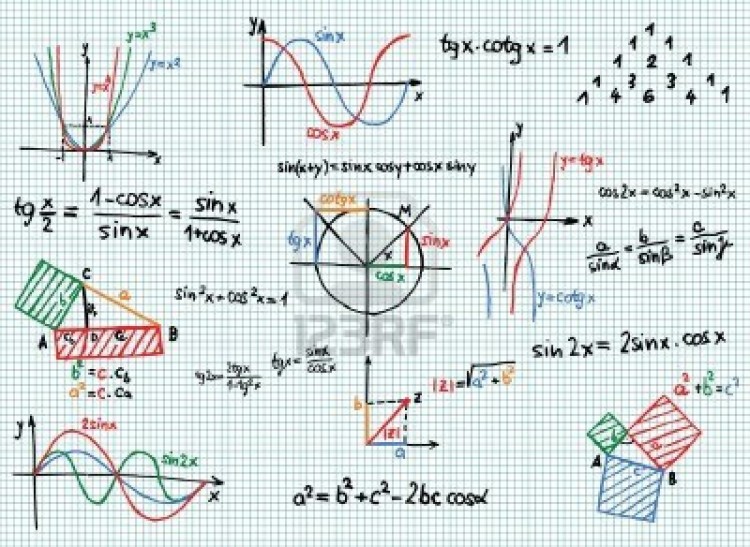 y
y=x³
y=x²
y=x⁴
1
-1
1
x
y
sinx
cosx
x
tgx·cotgx=1
1
1 1
1 2 1
1 3 3 1
1 4 6 4 1
sin(x+y)=sinx cosy+cosx siny
tg x/2 = 1-cosx/sinx = sinx/1+cosx
cotgx
M
tgx
x
sinx
cosx
y
y=tgx
x
y=cotgx
cos2x=cos²x-sin²x
a/sinα = b/sinβ = c/sinγ
C
b
a
A
D
B
b²=c·c_b
a²=c·c_a
sin²x+cos²x=1
123RF
tg2x=2tgx/1-tg²x
tgx=sinx/cosx
b
z
|z|
a
|z|=√a²+b²
sin2x=2sinx·cosx
a²+b²=c²
b
a
A
c
B
y
2sinx
sin2x
x
a²=b²+c²-2bc cosα